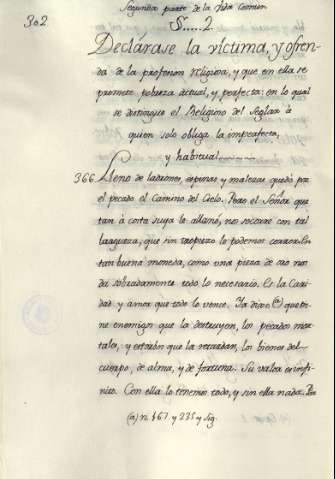 302
Segunda parte de la Vida Comun
S.....2
Declárase la víctima, y ofren-
da de la profesion religiosa, y que en ella se
promete pobreza actual, y perfecta: en lo qual
se distingue el Religioso del Seglar à
quien solo obliga la imperfecta,
y habitual
366. Lleno de ladrones, espinas y malezas quedó por
el pecado el Camino del Cielo. Pero el Señor que
tan à costa suya le allanó, nos socorre con tal
largueza, que sin tropiezo le podemos correr. En
tan buena moneda, como una pieza de oro nos
da sobradamente todo lo necesario. Es la Cari-
dad y amor que todo lo vence. Ya dixo @ que tie-
ne enemigos que la destruyen, los pecados mor-
tales, y estorbos que la retardan, los bienes del
cuerpo, de alma, y de fortuna. Su valor es infi-
nito. Con ella lo tenemos todo, y sin ella nada. Por
(a) n. 167. y 235 y sig.